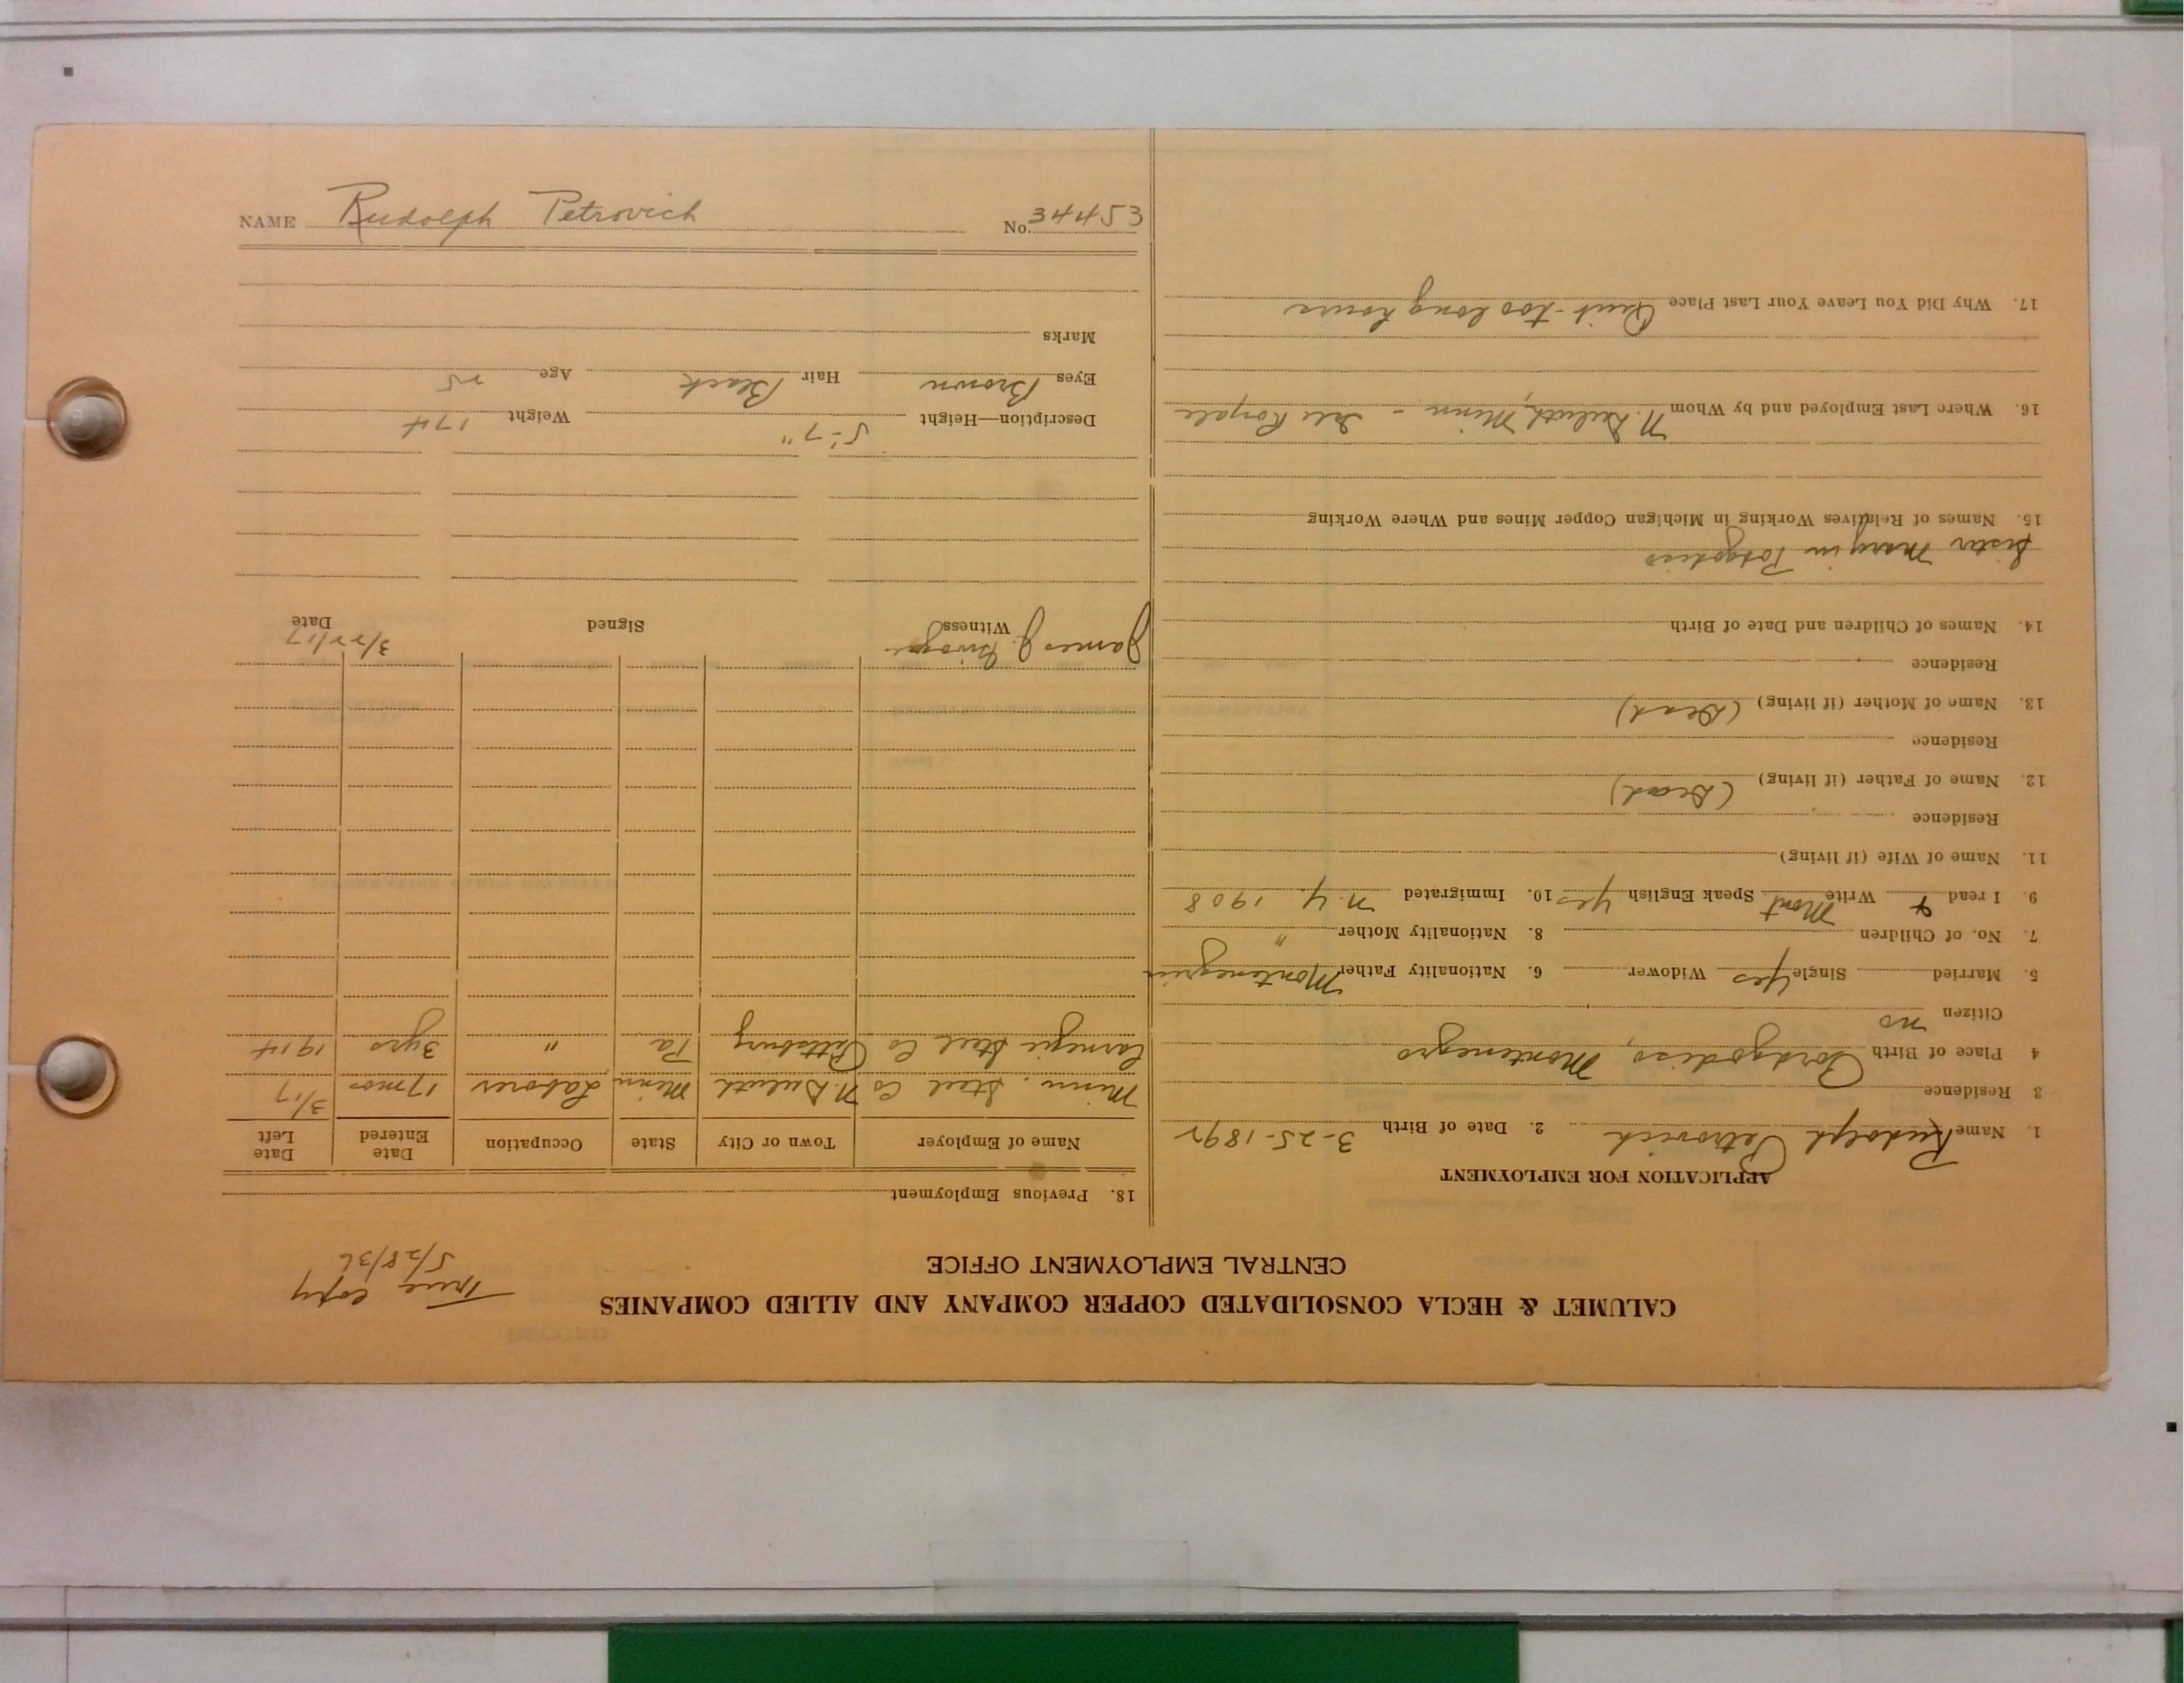 CALUMET & HECLA CONSOLIDATED COPPER COMPANY AND ALLIED COMPANIES
CENTRAL EMPLOYMENT OFFICE
True Copy
5/28/36
APPLICATION FOR EMPLOYMENT
1. Name Rudolph Petrovich 2. Date of Birth 3-25-1892
3 Residence
4 Place of Birth Pordgodiso, Montenegro
Citizen no
5. Married Single yes Widower 6. Nationality Father Montenegrin
7. No. of Children 8. Nationality Mother "
9. I read & Write Mont Speak English yes 10. Immigrated N.Y. 1908
11. Name of Wife (if living)
Residence
12. Name of Father (if living) (Dead)
Residence
13. Name of Mother (if living) (Dead)
Residence
14. Names of Children and Date of Birth
Sister Mary in
15. Names of Relatives Working in Michigan Copper Mines and Where Working
16. Where Last Employed and by Whom N. Duluth, Minn - Isle Royale
17. Why Did You Leave Your Last Place Quit - too long hours
18. Previous Employment
Name of Employer Town or City State Occupation Date Entered Date Left
Minn. Steel Co N. Duluth Minn Laborer 17 mos 3/17
Carnegie Steel Co Pittsburg Pa " 3 yrs 1914
James J. Witness Signed Date 3/22/17
Description—Height 5'-7" Weight 174
Eyes Brown Hair Black Age 25
Marks
NAME Rudolph Petrovich No. 34453